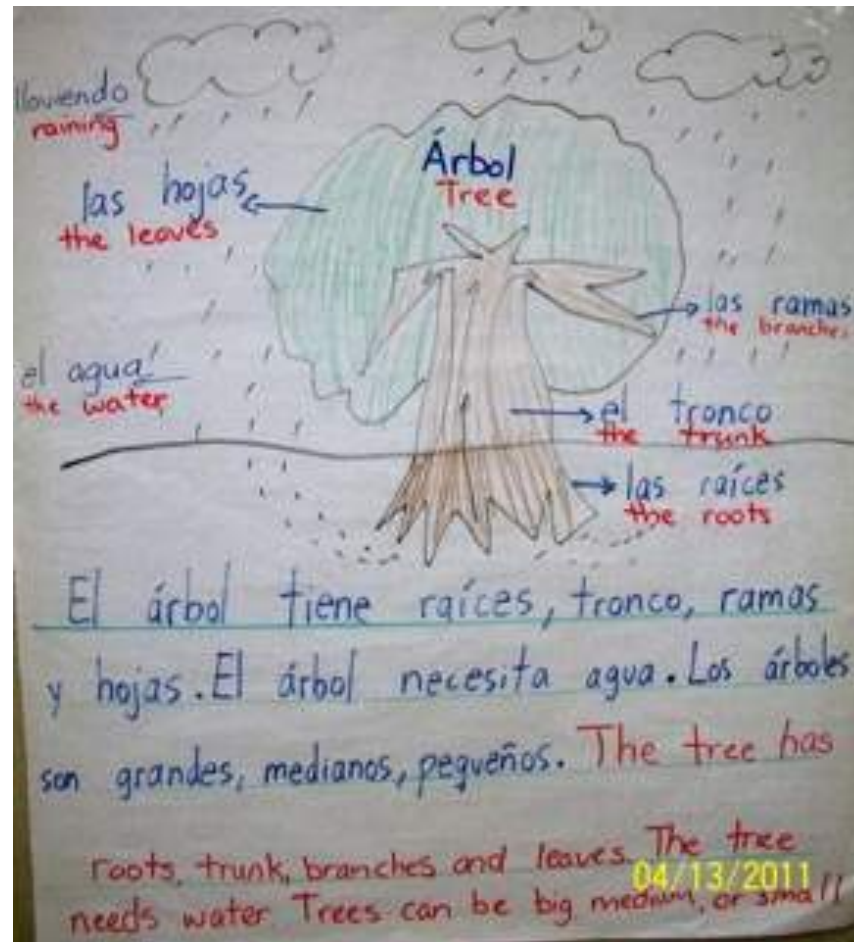 lloviendo
raining
Árbol
Tree
las hojas
the leaves
las ramas
the branches
el agua
the water
el tronco
the trunk
las raíces
the roots
El árbol tiene raíces, tronco, ramas
y hojas. El árbol necesita agua. Los árboles
son grandes, medianos, pequeños. The tree has
roots, trunk, branches and leaves. The tree
04/13/2011
needs water. Trees can be big medium, or small